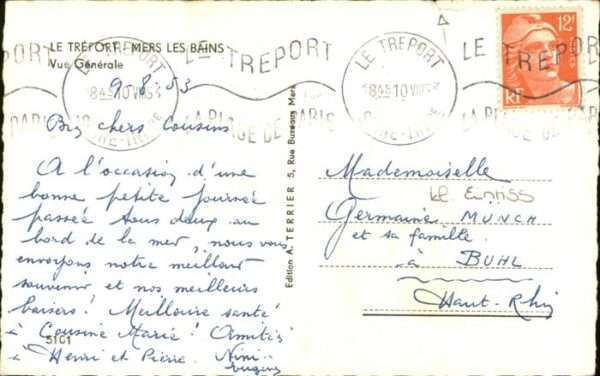 LE TRÉPORT - MERS LES BAINS
Vue Générale
9.8.53
Bien chers Cousins
A l'occasion d'une
bonne petite journée
passée tous deux au
bord de la mer, nous vous
envoyons notre meilleur
souvenir et nos meilleurs
baisers! Meilleure santé
à Cousine Marie! Amitiés
à Henri et Pierre. Nini
5101
Edition A. TERRIER 5, Rue Buzeaux Mers
LE TREPORT
18 45 10 VIII 53
LE TREPORT
LA PLAGE DE PARIS
LE TREPORT
18 45 10
LE TREPORT
LA PLAGE DE PARIS
12F
RF
Mademoiselle
Germaine MUNCH
et sa famille
à BUHL
Haut-Rhin